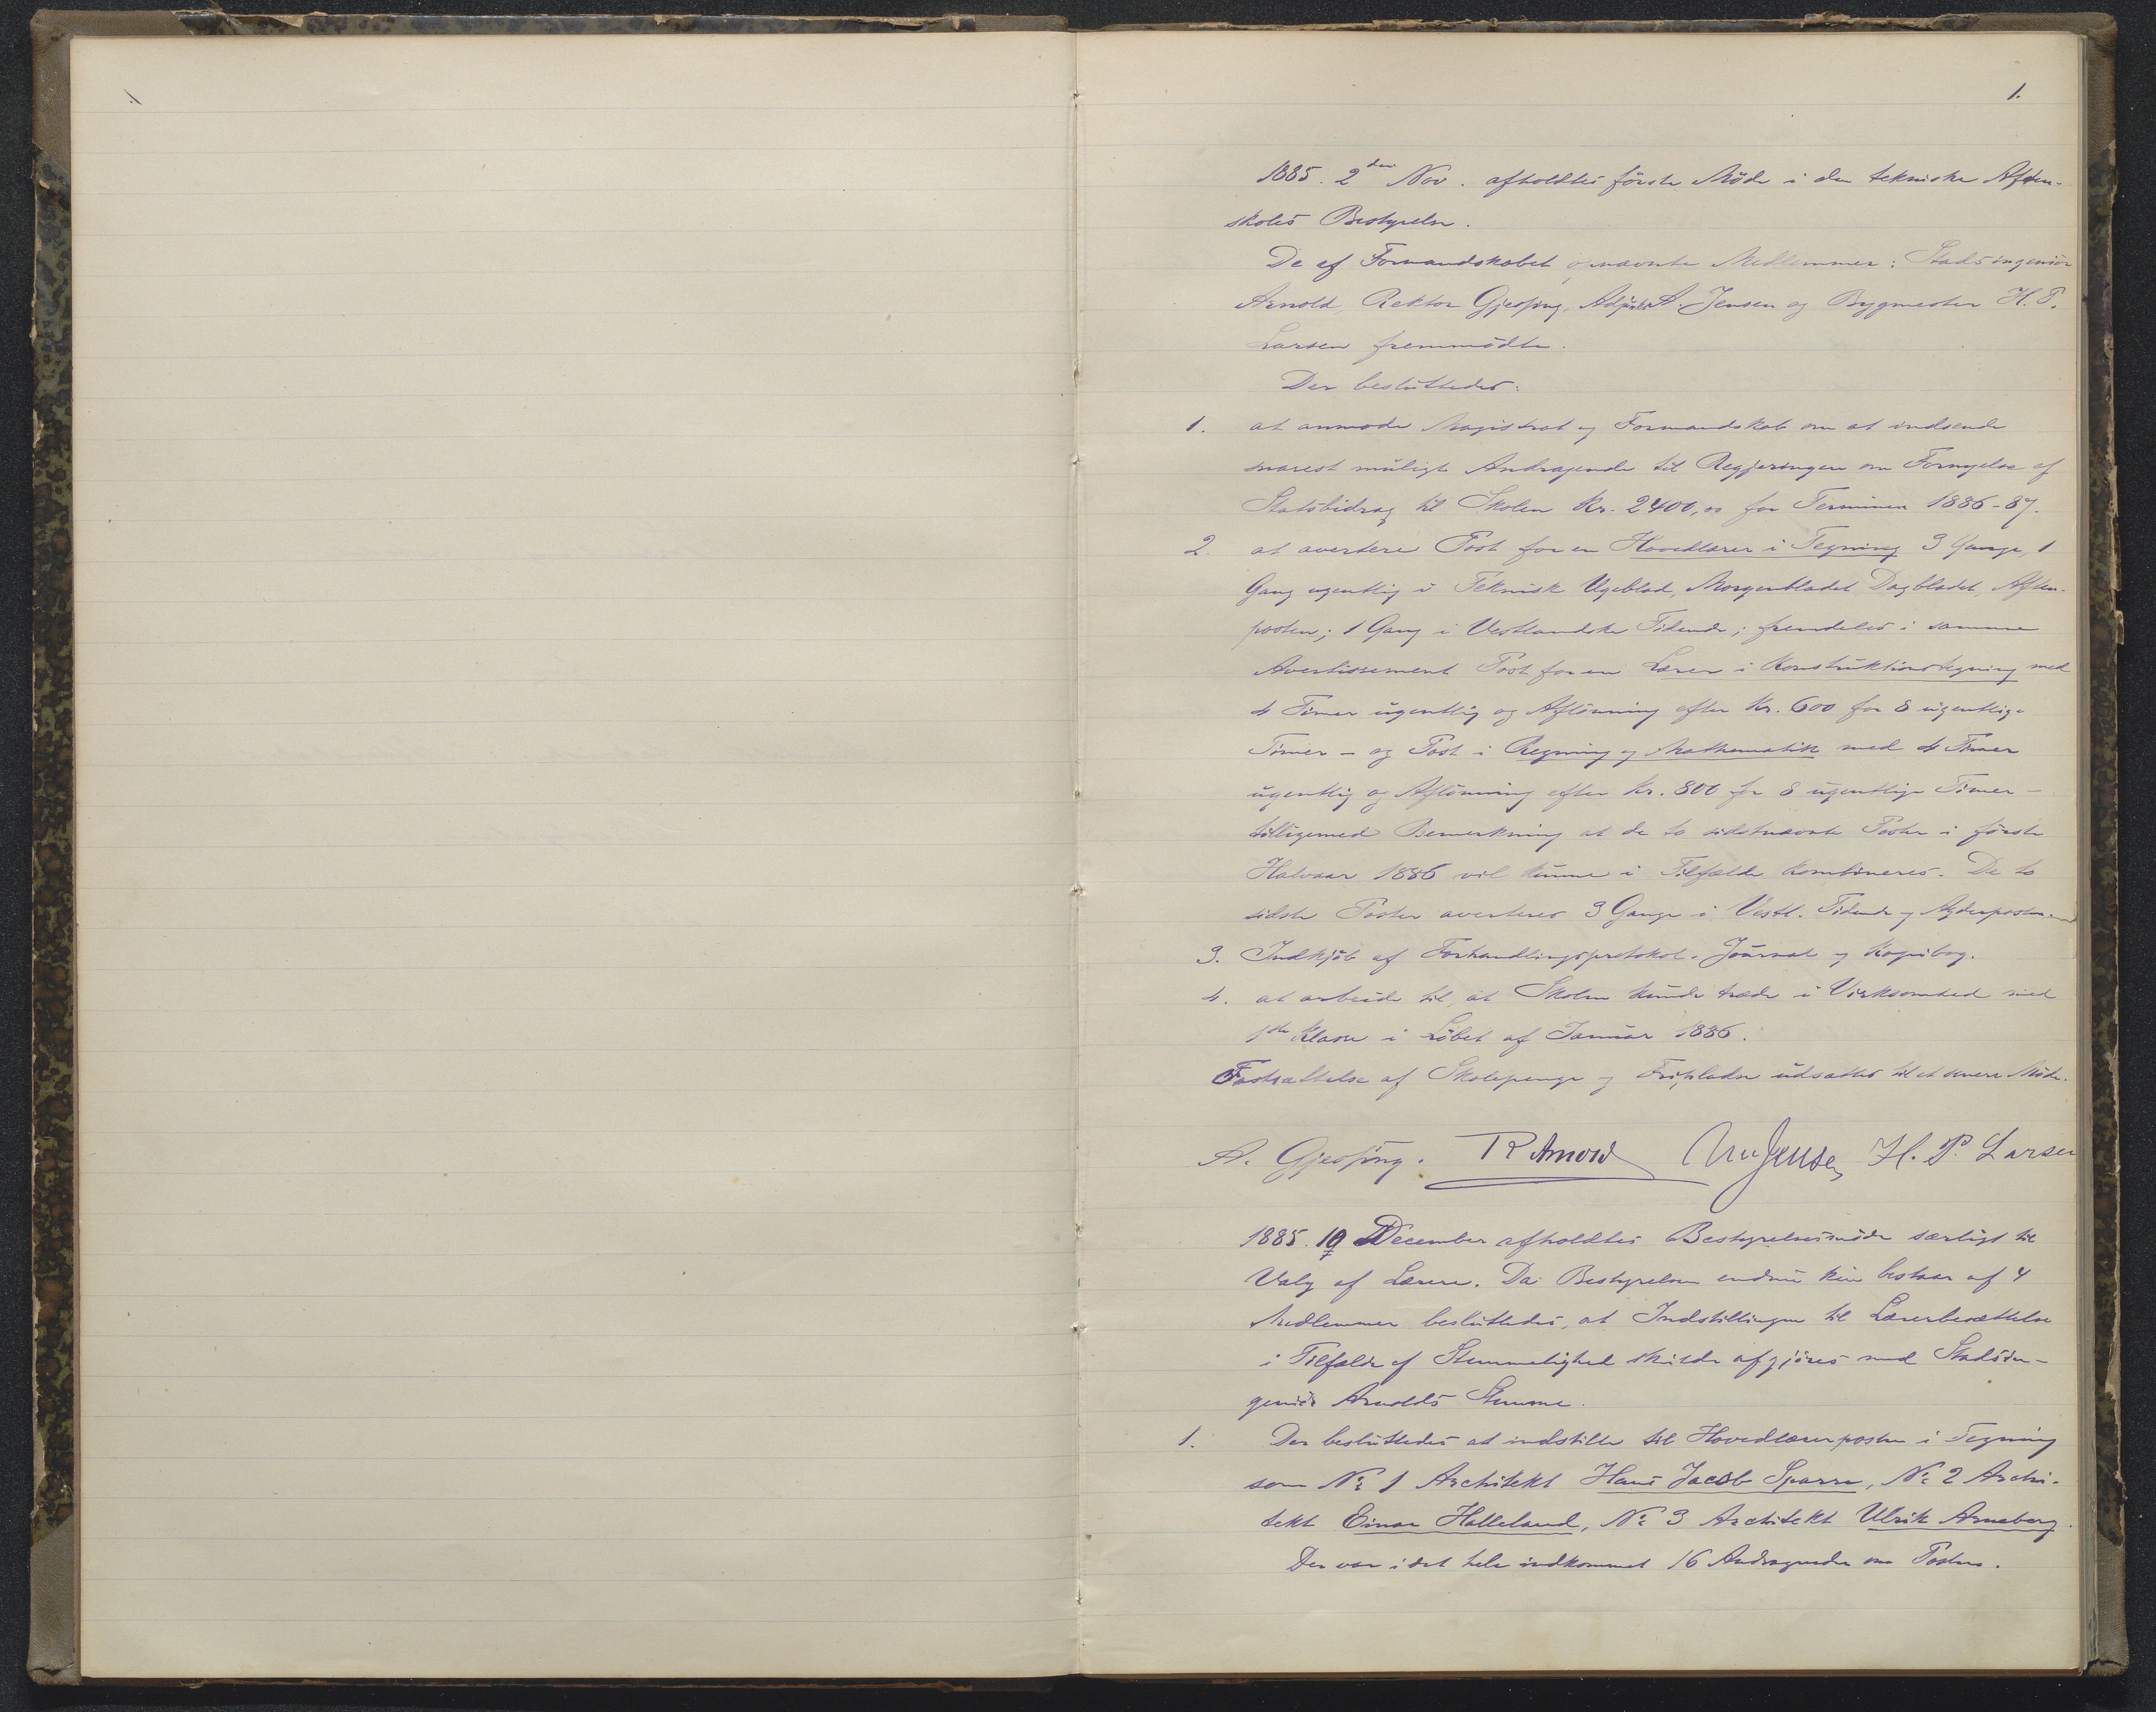 1.
1885. 2den Nov. afholdtes første Møde i den tekniske Aften-
skoles Bestyrelse.
De af Formandskabet opnævnte Medlemmer: Stadsingeniør
Arnold, Rektor Gjessing, Adjunkt A. Jensen og Bygmester H. P.
Larsen fremmødte.
Der besluttedes:
1. at anmode Magistrat og Formandskab om at indsende
snarest muligt Andragende til Regjeringen om Fornyelse af
Statsbidrag til Skolen Kr. 2400,00 for Terminen 1886-87.
2. at avertere Post for en Hovedlærer i Tegning 3 Gange, 1
Gang ugentlig i Teknisk Ugeblad, Morgenbladet, Dagbladet, Aften-
posten; 1 Gang i Vestlandske Tidende; fremdeles i samme
Avertissement Post for en Lærer i Konstruktionstegning med
4 Timer ugentlig og Aflønning efter Kr. 600 for 8 ugentlige
Timer – og Post i Regning og Mathematik med 4 Timer
ugentlig og Aflønning efter Kr. 800 for 8 ugentlige Timer –
tilligemed Bemerkning at de to sidstnævnte Poster i første
Halvaar 1886 vil kunne i Tilfælde kombineres. De to
sidste Poster averteres 3 Gange i Vestl. Tidende og Agderposten
3. Indkjøb af Forhandlingsprotokol, Journal og Kopibog.
4. at arbeide til, at Skolen kunde træde i Virksomhed med
1ste Klasse i Løbet af Januar 1886.
Fastsættelse af Skolepenge og Fripladse udsattes til et senere Møde.
A. Gjessing. R Arnold Jensen H. P. Larsen
1885. 10 December afholdtes Bestyrelsesmøde særligt til
Valg af Lærere. Da Bestyrelsen endnu kun bestaar af 4
Medlemmer besluttedes, at Indstillingen til Lærerbesættelse
i Tilfælde af Stemmelighed skulde afgjøres med Stadsin-
geniør Arnolds Stemme.
1. Der besluttedes at indstille til Hovedlærerposten i Tegning
som No 1 Architekt Hans Jacob Sparre, No 2 Archi-
tekt Einar Halleland, No 3 Architekt Ulrik Arneberg.
Der var i det hele indkommet 16 Andragender om Posten.